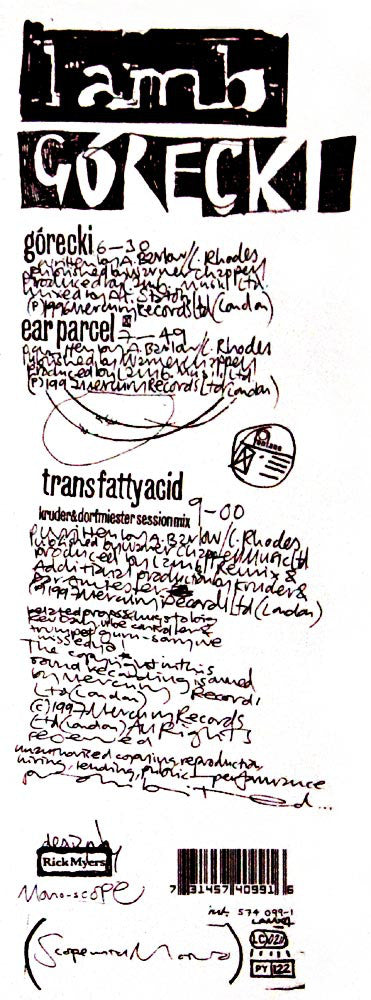 lamb
GÓRECKI
górecki 6-30
written by A. Barlow/L. Rhodes
published by warner chappell
produced by Lamb. Music Ltd
mixed by
(P) 1997 Mercury Records Ltd (London)
ear parcel 7-49
written by A. Barlow/L. Rhodes
published by Warner chappell
produced by Lamb. Music Ltd
(P) 1997 Mercury Records Ltd (London)
fontana
trans fatty acid
kruder & dorfmiester session mix 9-00
written by A. Barlow/L. Rhodes
Published by warner chappell Music Ltd
produced by Lamb. Remix &
Additional production by Kruder &
(P) 1997 Mercury Records Ltd (London)
The copyright in this
sound recording is owned
by Mercury Records
Ltd (London)
(C) 1997 Mercury Records
Ltd (London) All Rights
reserved
unauthorised copying, reproduction,
hiring, lending, public performance
prohibited...
design by
Rick Myers
Mono-scope
7 31457 40991 6
int. 574 099-1
(Scope with Mono)
PY 122